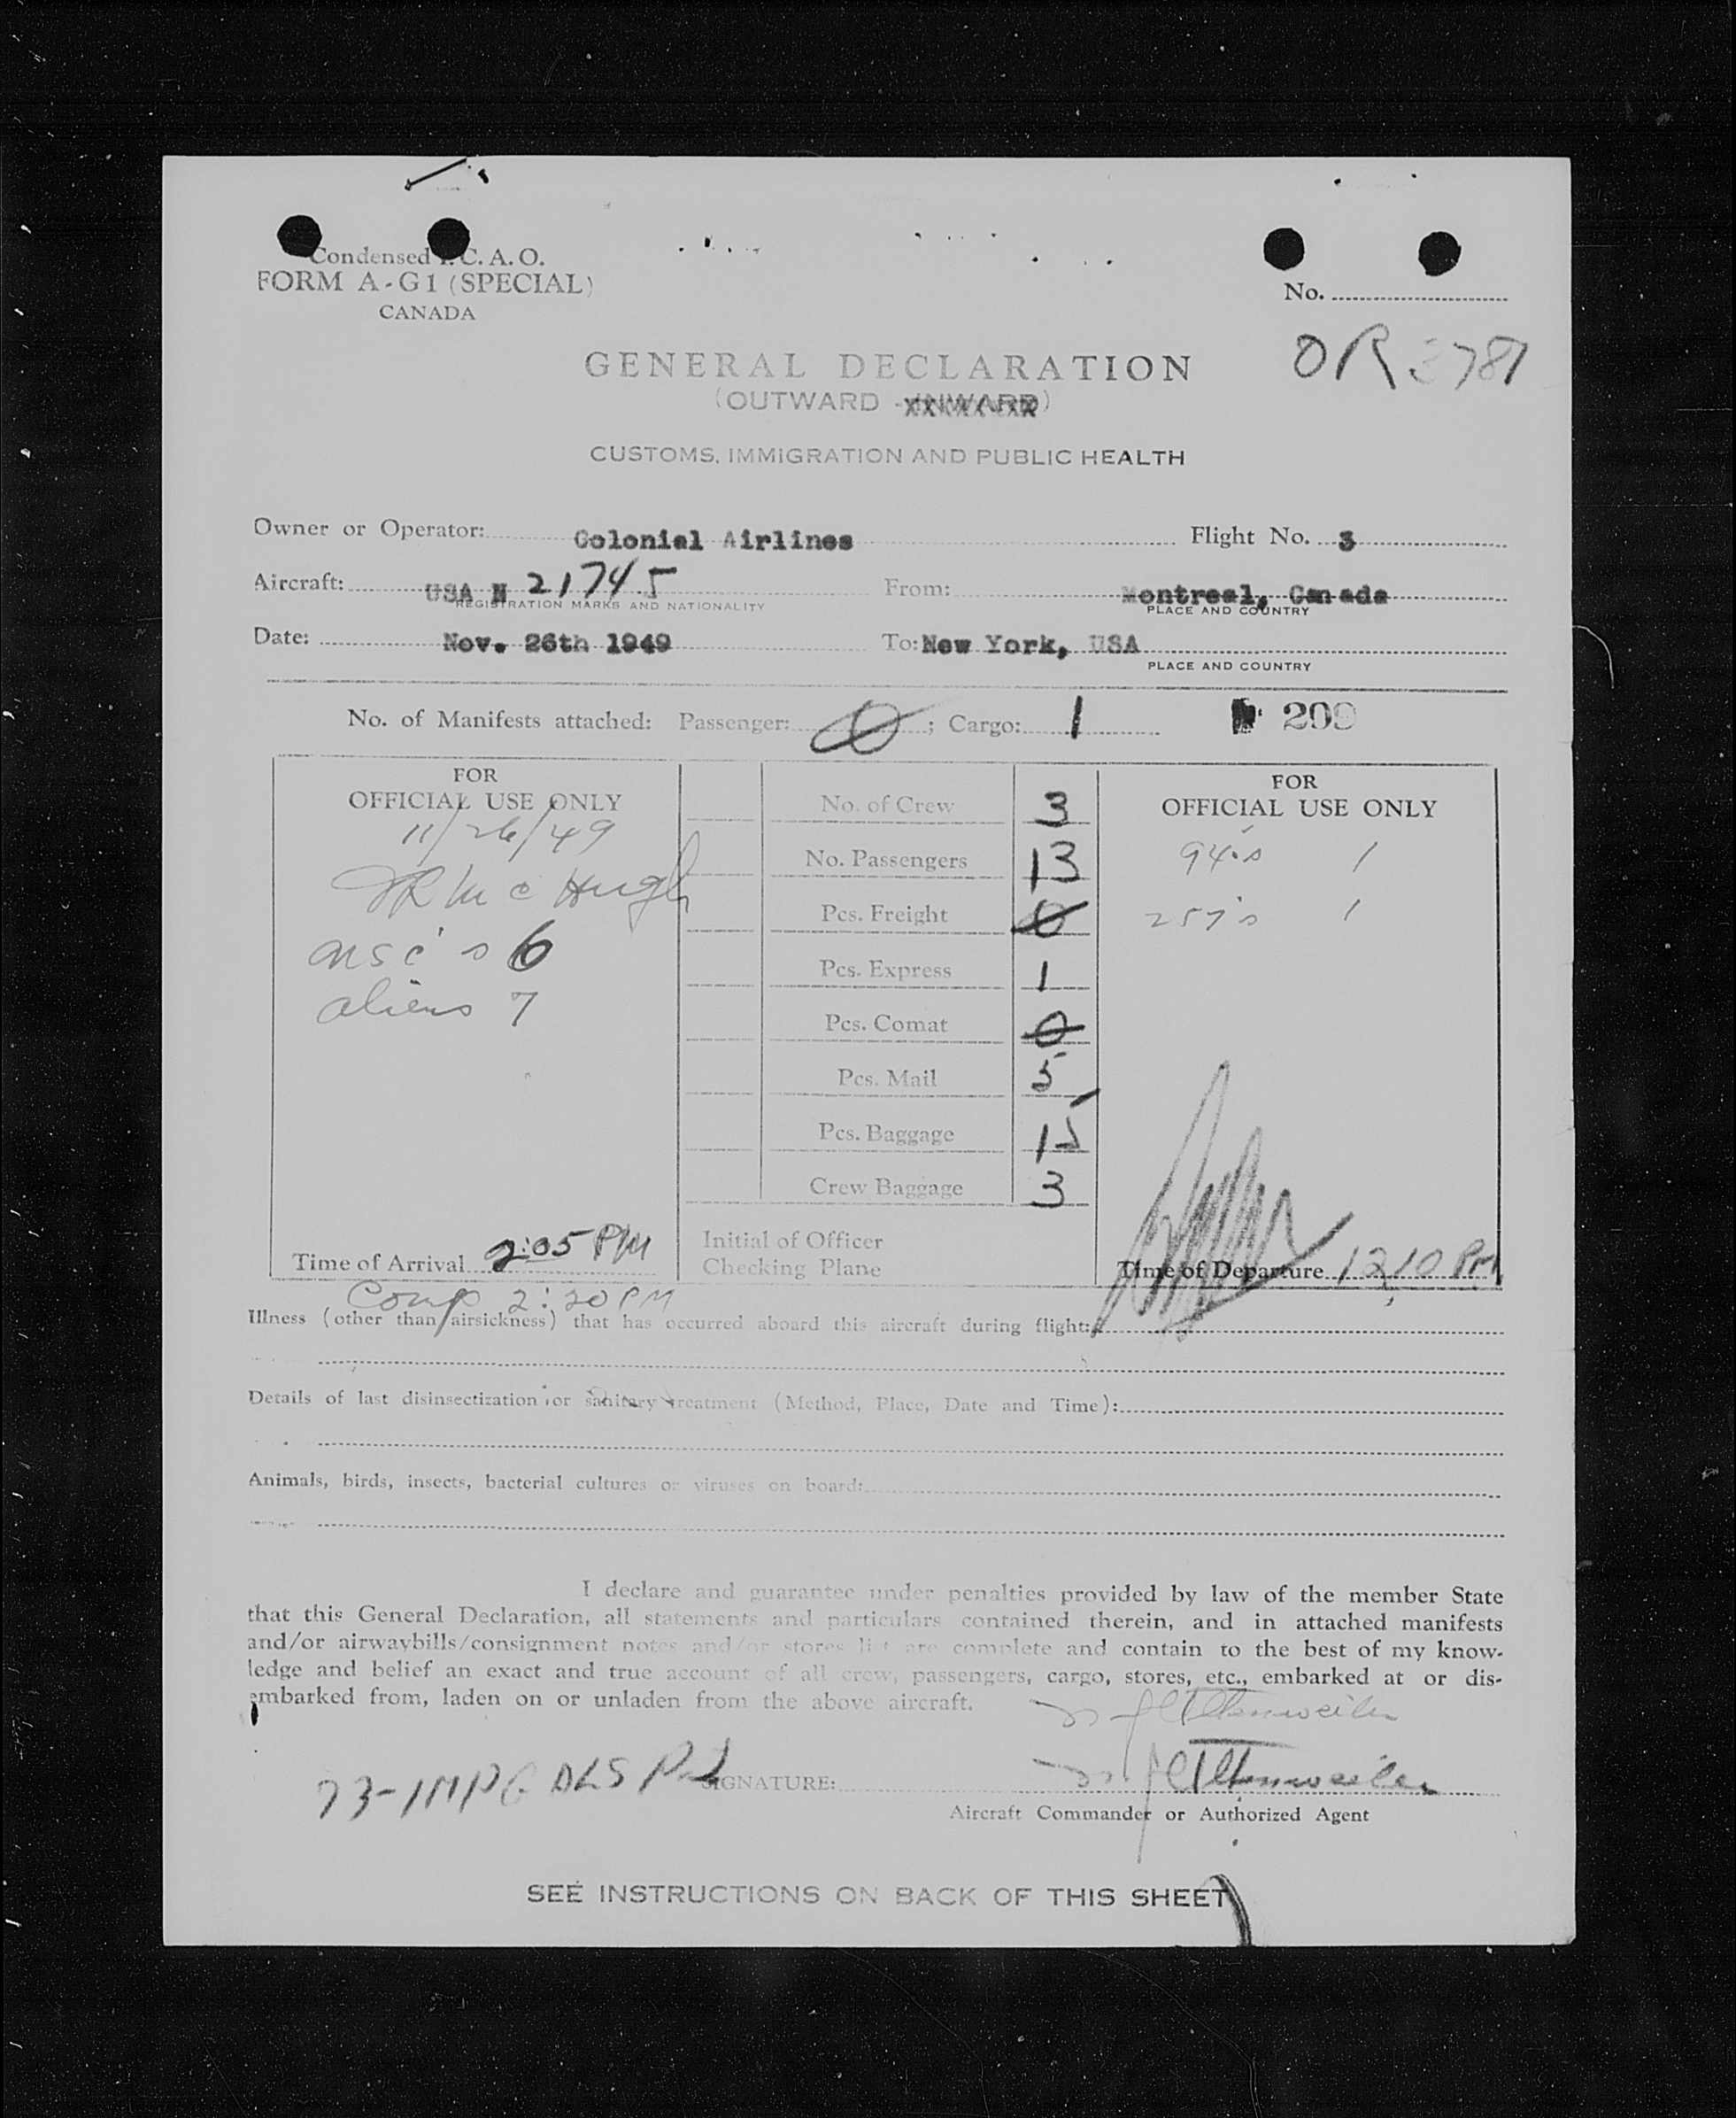 Condensed I. C. A. O.
FORM A-G1 (SPECIAL)
CANADA
No.
OR 3787
GENERAL DECLARATION
(OUTWARD - INWARD)
CUSTOMS, IMMIGRATION AND PUBLIC HEALTH
Owner or Operator: Colonial Airlines Flight No. 3
Aircraft: USA N 21745 From: Montreal, Canada
REGISTRATION MARKS AND NATIONALITY PLACE AND COUNTRY
Date: Nov. 26th 1949 To: New York, USA
PLACE AND COUNTRY
No. of Manifests attached: Passenger: 0 ; Cargo: 1 209
FOR
OFFICIAL USE ONLY
11/26/49
JR McHugh
usc's 6
aliens 7
Time of Arrival 2:05 PM
Comp 2:20 PM
No. of Crew 3
No. Passengers 13
Pcs. Freight 0
Pcs. Express 1
Pcs. Comat 0
Pcs. Mail 5
Pcs. Baggage 15
Crew Baggage 3
Initial of Officer
Checking Plane
FOR
OFFICIAL USE ONLY
94's 1
257's 1
Time of Departure 1210 PM
Illness (other than airsickness) that has occurred aboard this aircraft during flight:
Details of last disinsectization or sanitary treatment (Method, Place, Date and Time):
Animals, birds, insects, bacterial cultures or viruses on board:
I declare and guarantee under penalties provided by law of the member State
that this General Declaration, all statements and particulars contained therein, and in attached manifests
and/or airwaybills/consignment notes and/or stores list are complete and contain to the best of my know-
ledge and belief an exact and true account of all crew, passengers, cargo, stores, etc., embarked at or dis-
embarked from, laden on or unladen from the above aircraft.
SIGNATURE:
Aircraft Commander or Authorized Agent
SEE INSTRUCTIONS ON BACK OF THIS SHEET